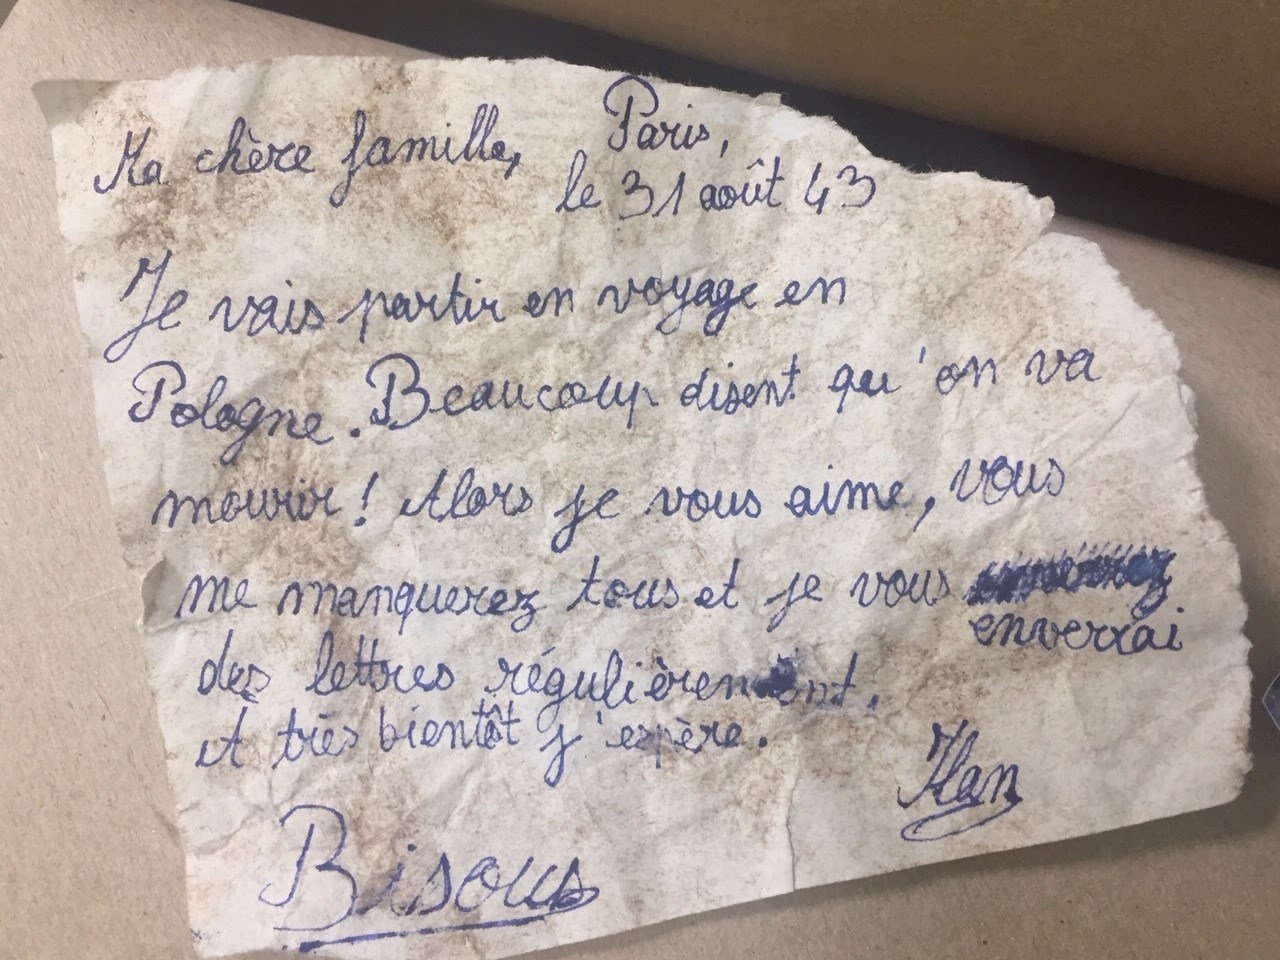 Ma chère famille,
Paris,
le 31 août 43
Je vais partir en voyage en
Pologne. Beaucoup disent qu'on va
mourir ! Alors je vous aime, vous
me manquerez tous et je vous
enverrai
des lettres régulièrement.
et très bientôt j'espère.
Ilan
Bisous